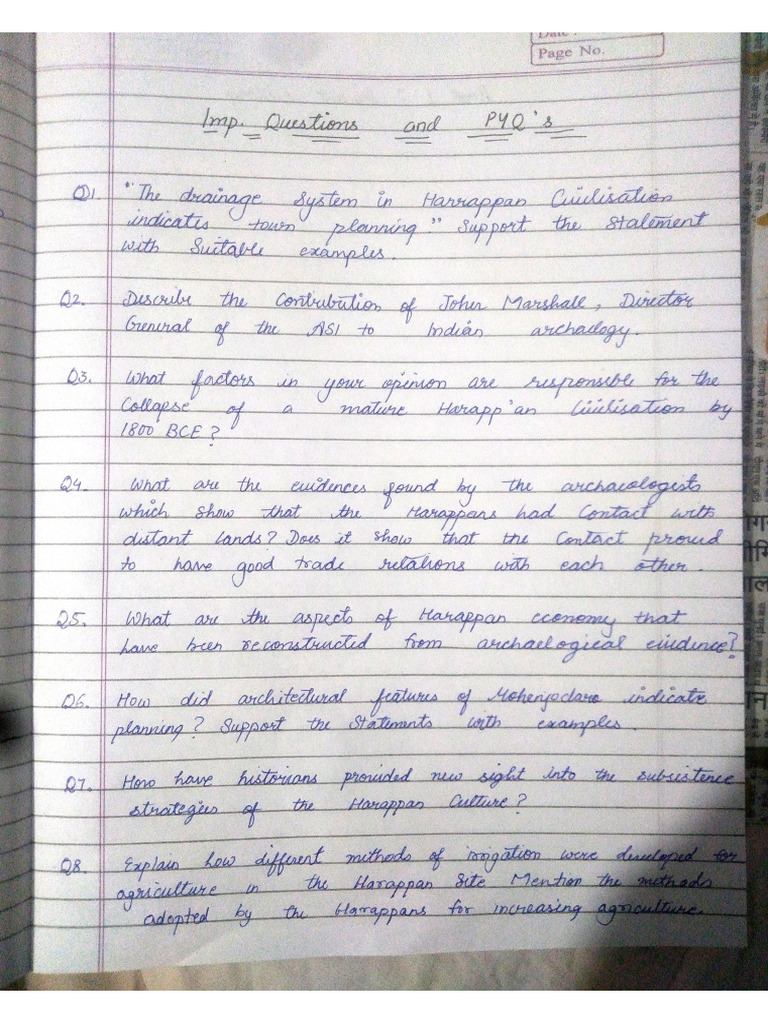 Date :
Page No.
Imp. Questions and PYQ's
Q1. "The drainage System in Harrappan Civilisation
indicates town planning" Support the Statement
with Suitable examples.
Q2. Describe the Contribution of John Marshall, Director
General of the ASI to Indian archaelogy.
Q3. What factors in your opinion are responsible for the
Collapse of a mature Harapp'an Civilisation by
1800 BCE?
Q4. What are the evidences found by the archaeologists
which show that the Harappans had Contact with
distant lands? Does it show that the Contact proved
to have good trade relations with each other.
Q5. What are the aspects of Harappan economy that
have been reconstructed from archaelogical evidence?
Q6. How did architectural features of Mohenjodaro indicate
planning? Support the Statements with examples.
Q7. How have historians provided new sight into the subsistence
strategies of the Harappan Culture?
Q8. Explain how different methods of irrigation were developed for
agriculture in the Harappan Site Mention the methods
adopted by the Harappans for increasing agriculture.